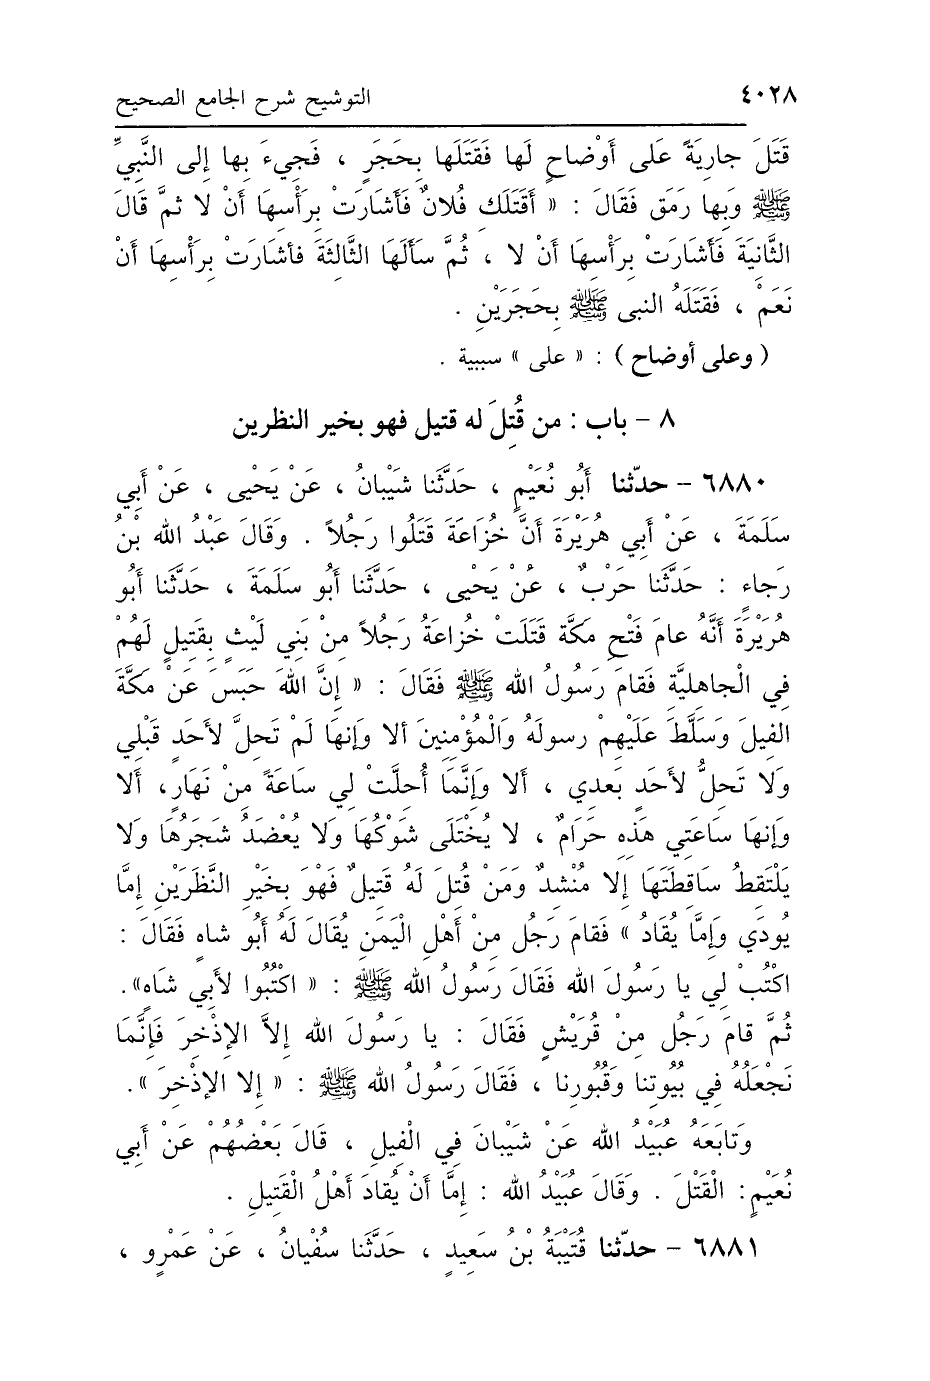 ٤٠٢٨ التوشيح شرح الجامع الصحيح
قَتَلَ جارِيَةً عَلَى أَوْضاحٍ لَها فَقَتَلَها بِحَجَرٍ ، فَجِيءَ بِها إلى النَّبِيِّ
ﷺ وَبِها رَمَق فَقَالَ : « أَقَتَلَكِ فُلانٌ فَأَشارَتْ بِرَأْسِهَا أَنْ لا ثمَّ قَالَ
الثَّانِيَةَ فَأَشَارَتْ بِرَأْسِهَا أَنْ لا ، ثُمَّ سَأَلَهَا الثَّالِثَةَ فأشَارَتْ بِرَأْسِهَا أَنْ
نَعَمْ ، فَقَتَلَهُ النبى ﷺ بِحَجَرَيْنِ .
( وعلى أوضاح ) : « على » سببية .
٨ – باب : من قُتِلَ له قتيل فهو بخير النظرين
٦٨٨٠ – حدّثنا أَبُو نُعَيْمٍ ، حَدَّثَنا شَيْبانُ ، عَنْ يَحْيى ، عَنْ أَبِي
سَلَمَةَ ، عَنْ أَبِي هُرَيْرَةَ أَنَّ خُزَاعَةَ قَتَلُوا رَجُلاً . وَقَالَ عَبْدُ الله بْنُ
رَجاءٍ : حَدَّثَنا حَرْبٌ ، عَنْ يَحْيى ، حَدَّثَنا أَبُو سَلَمَةَ ، حَدَّثَنا أَبُو
هُرَيْرَةَ أَنَّهُ عامَ فَتْحِ مَكَّةَ قَتَلَتْ خُزاعَةُ رَجُلاً مِنْ بَنِي لَيْثٍ بِقَتِيلٍ لَهُمْ
فِي الْجاهليَّةِ فَقامَ رَسُولُ الله ﷺ فَقَالَ : « إِنَّ اللهَ حَبَسَ عَنْ مَكَّةَ
الفِيلَ وَسَلَّطَ عَلَيْهِمْ رسولَهُ وَالْمُؤْمِنِينَ ألا وَإنها لَمْ تَحِلَّ لأَحَدٍ قَبْلِي
وَلا تَحِلُّ لأَحَدٍ بَعدِي ، ألا وَإِنَّمَا أُحلَّتْ لِي ساعَةً مِنْ نَهَارٍ، ألا
وَإنهَا سَاعَتِي هَذِهِ حَرَامٌ ، لا يُخْتَلَى شَوْكُهَا وَلا يُعْضَدُ شَجَرُهَا وَلا
يَلْتَقِطُ سَاقِطَتَهَا إلا مُنْشِدٌ وَمَنْ قُتِلَ لَهُ قَتِيلٌ فَهْوَ بِخَيْرِ النَّظَرَيْنِ إمَّا
يُودَي وَإِمَّا يُقَادُ » فَقامَ رَجُلٌ مِنْ أَهْلِ الْيَمَنِ يُقَالَ لَهُ أَبُو شاهٍ فَقَالَ :
اكْتُبْ لِي يا رَسُولَ الله فَقَالَ رَسُولُ الله ﷺ : « اكْتُبُوا لأَبِي شَاهٍ».
ثُمَّ قامَ رَجُلٌ مِنْ قُرَيْشٍ فَقَالَ : يا رَسُولَ الله إلاَّ الإِذْخِرَ فَإِنَّمَا
نَجْعَلُهُ فِي بُيُوتِنا وَقُبُورِنا ، فَقَالَ رَسُولُ الله ﷺ : « إلا الإذْخِرَ ».
وَتابَعَهُ عُبَيْدُ الله عَنْ شَيْبانَ فِي الْفِيلِ ، قَالَ بَعْضُهُمْ عَنْ أَبِي
نُعَيْمٍ: الْقَتْلَ . وَقَالَ عُبَيْدُ الله : إمَّا أَنْ يُقادَ أَهْلُ القَتِيلِ .
٦٨٨١ – حدّثنا قُتَيْبَةُ بْنُ سَعِيدٍ ، حَدَّثَنا سُفْيانُ ، عَنْ عَمْرٍو ،